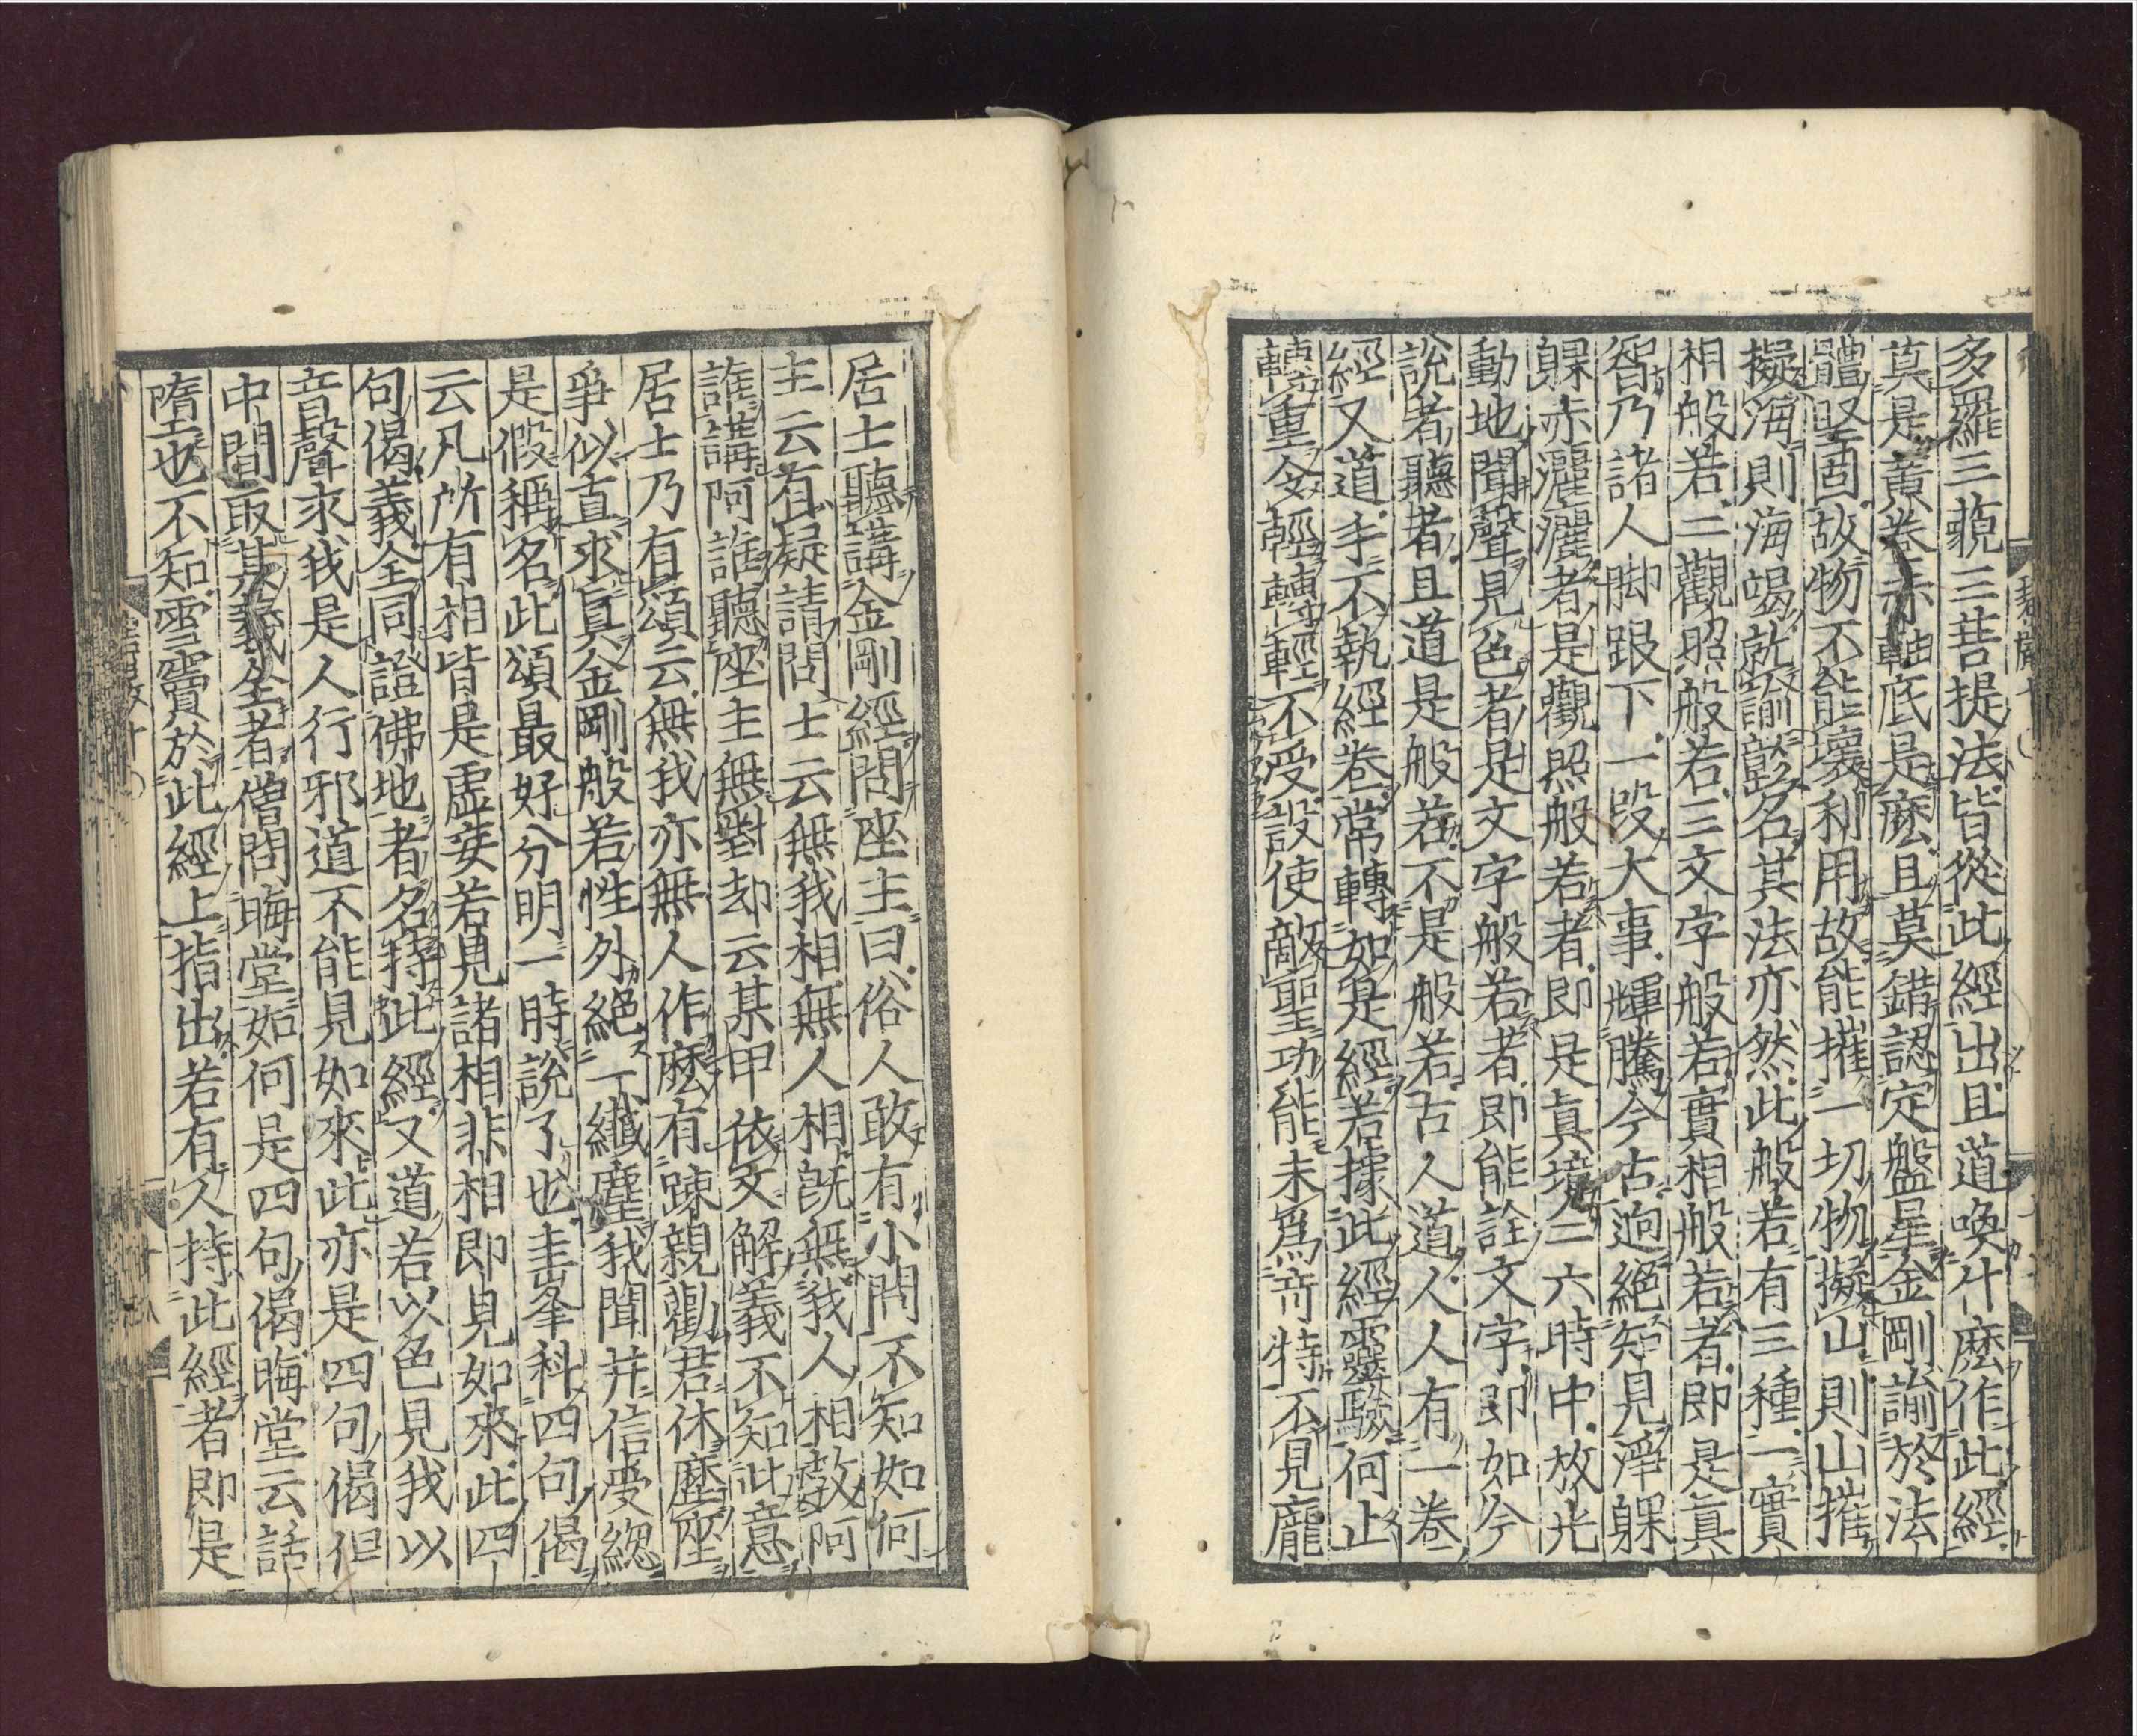 多羅三藐三菩提法皆從此經出且道喚什麽作此經
莫是黄卷赤軸底是麽且莫錯認定盤星金剛諭於法
體堅固故物不能壞利用故能摧一切物擬山則山摧
擬海則海竭就諭彰名其法亦然此般若有三種一實
相般若二觀照般若三文字般若實相般若者即是眞
智乃諸人脚跟下一段大事輝騰今古逈絕知見淨躶
躶赤灑灑者是觀照般若者即是眞境二六時中放光
動地聞聲見色者是文字般若者即能詮文字即如今
說者聽者且道是般若不是般若古人道人人有一卷
經又道手不執經卷常轉如是經若據此經靈驗何止
轉重令輕轉輕不受設使敵聖功能未爲竒特不見龐
居士聽講金剛經問座主曰俗人敢有小問不知如何
主云有疑請問士云無我相無人相旣無我人相敎阿
誰講阿誰聽座主無對却云某甲依文解義不知此意
居士乃有頌云無我亦無人作麽有踈親勸君休歷座
爭似直求眞金剛般若性外絕一纖塵我聞并信受緫
是假稱名此頌最好分明一時說了也圭峯科四句偈
云凡所有相皆是虛妄若見諸相非相即見如來此四
句偈義全同證佛地者名持此經又道若以色見我以
音聲求我是人行邪道不能見如來此亦是四句偈但
中間取其義全者僧問晦堂如何是四句偈晦堂云話
墮也不知雪竇於此經上指出若有人持此經者即是